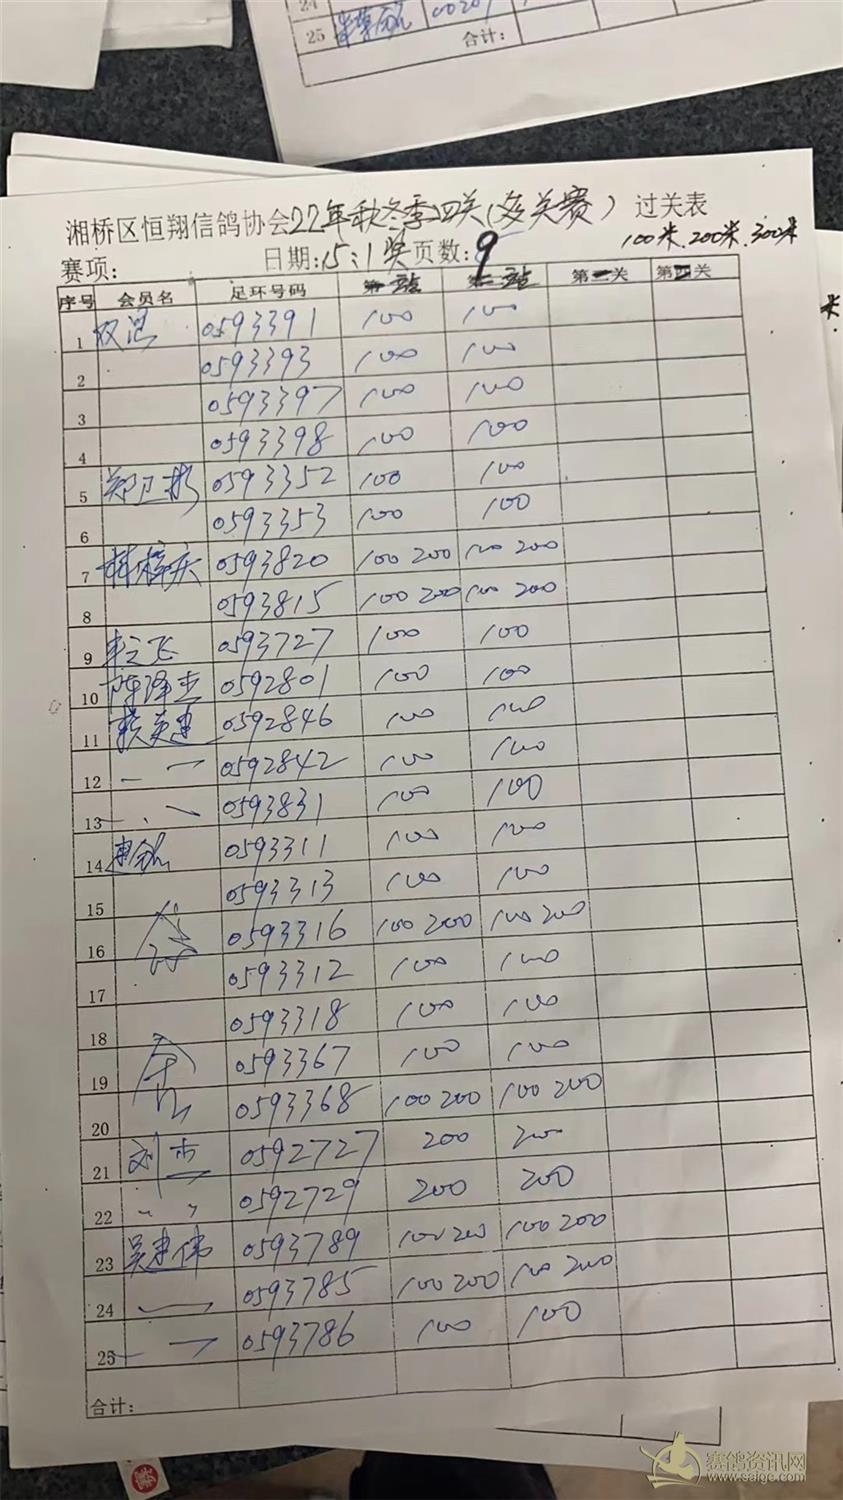 24
25
合计:
湘桥区恒翔信鸽协会22年秋冬季四关(多关赛) 过关表
赛项: 日期:15:1奖 页数:9 100米.200米.300米
米
序号 会员名 足环号码 第一站 第二站 第三关 第四关
1 0593391 100 100
2 0593393 100 100
3 0593397 100 100
4 0593398 100 100
5 郑卫彬 0593352 100 100
6 0593353 100 100
7 0593820 100 200 100 200
8 0593815 100 200 100 200
9 0593727 100 100
10 陈泽杰 0592801 100 100
11 0592846 100 100
12 0592842 100 100
13 0593831 100 100
14 0593311 100 100
15 0593313 100 100
16 0593316 100 200 100 200
17 0593312 100 100
18 0593318 100 100
19 0593367 100 100
20 0593368 100 200 100 200
21 刘杰 0592727 200 200
22 〃 0592729 200 200
23 吴建伟 0593789 100 200 100 200
24 0593785 100 200 100 200
25 0593786 100 100
合计:
赛鸽资讯网
www.saige.com